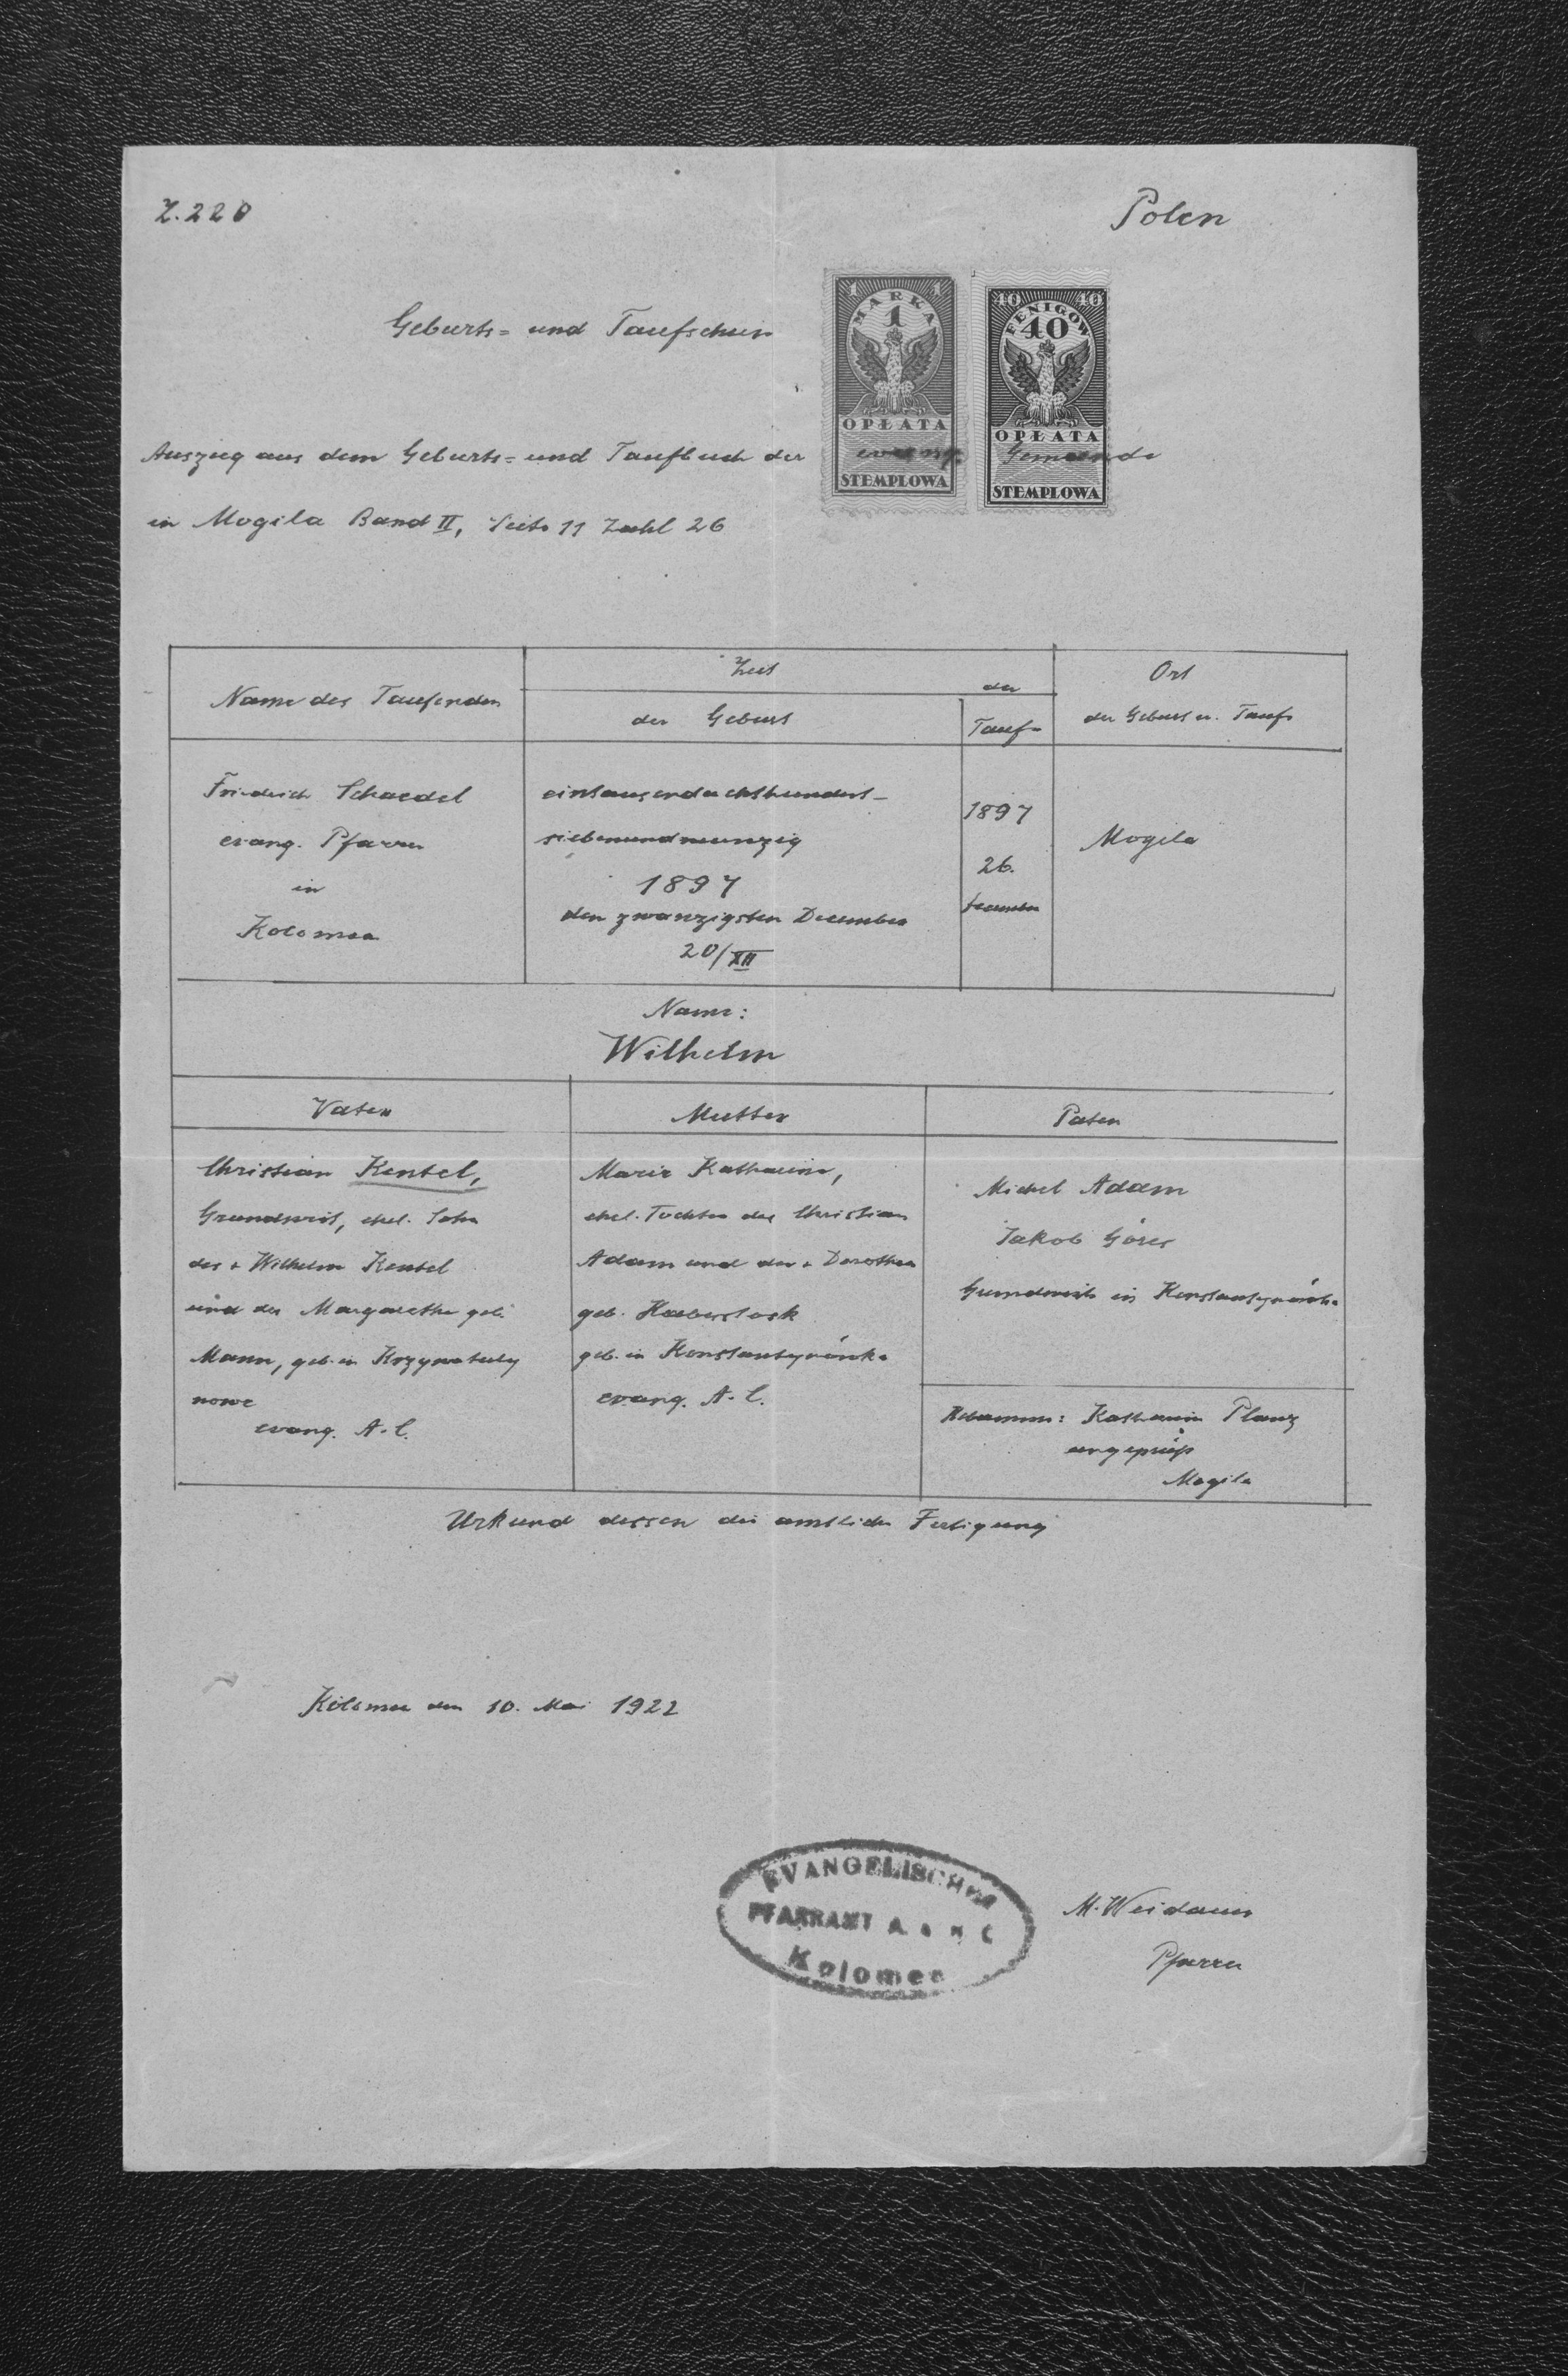 Z. 220
Polen
Geburts= und Taufschein
1 1
MARKA
1
OPŁATA
STEMPLOWA
40 40
FENIGÓW
40
OPŁATA
STEMPLOWA
Auszug aus dem Geburts= und Taufbuch der evang. Gemeinde
in Mogila Band II, Seite 11 Zahl 26
Name des Taufenden
Zeit
der Geburt
der
Taufe
Ort
der Geburt u. Taufe
Friedrich Schaedel
evang. Pfarrer
in
Kolomea
eintausendachthundert-
siebenundneunzig
1897
den zwanzigsten December
20/XII
1897
26.
Mogila
Name:
Wilhelm
Vater
Mutter
Paten
Christian Kentel,
Grundwirt, ehel. Sohn
des + Wilhelm Kentel
und der Margarethe geb.
Mann, geb. in
nowe
evang. A. C.
Marie Katharina,
ehel. Tochter des Christian
Adam und der + Dorothea
geb. Haberstock
geb. in Konstantynówka
evang. A. C.
Michel Adam
Jakob Göres
Grundwirte in Konstantynówka
Hebamme: Katharina Planz
ungeprüft
Mogila
Urkund dessen die amtliche Fertigung
Kolomea den 10. Mai 1922
EVANGELISCHES
PFARRAMT A. u. H. C
Kolomea
M. Weidauer
Pfarrer